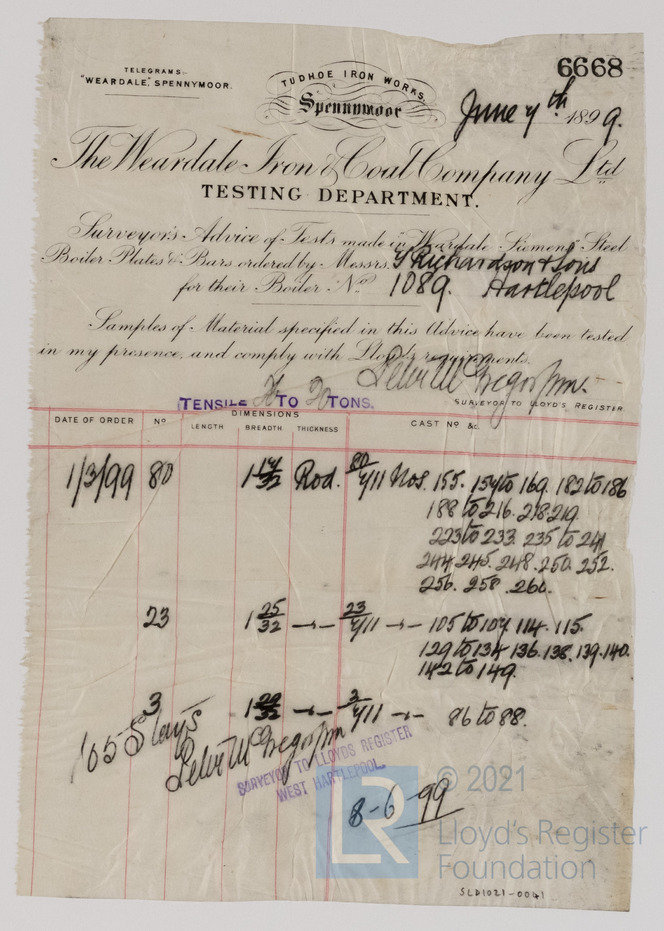 TELEGRAMS:-
"WEARDALE," SPENNYMOOR.
TUDHOE IRON WORKS,
Spennymoor
6668
June 7th 1899.
The Weardale Iron & Coal Company Ltd
TESTING DEPARTMENT.
Surveyor's Advice of Tests made in "Weardale Siemens" Steel
Boiler Plates & Bars ordered by Messrs. T Richardson & Sons
for their Boiler No. 1089. Hartlepool
Samples of Material specified in this Advice have been tested
in my presence, and comply with Lloyd's requirements.
SURVEYOR TO LLOYD'S REGISTER
TENSILE 26 TO 30 TONS.
DATE OF ORDER No DIMENSIONS LENGTH BREADTH THICKNESS CAST Nos. &c.
1/3/99 80 1 14/32 Rod. 80/711 Nos. 155. 157 to 169. 182 to 186
188 to 216. 218. 219.
223 to 233. 235 to 241
244. 245. 248. 250. 252.
256. 258. 260.
23 1 25/32 -"- 23/711 -"- 105 to 107 114. 115.
129 to 134 136. 138. 139. 140.
142 to 149.
3 1 29/32 -"- 3/711 -"- 86 to 88.
105 Stays
SURVEYOR TO LLOYDS REGISTER
WEST HARTLEPOOL.
8-6-99
LR
© 2021
Lloyd's Register
Foundation
SLD1021-0041